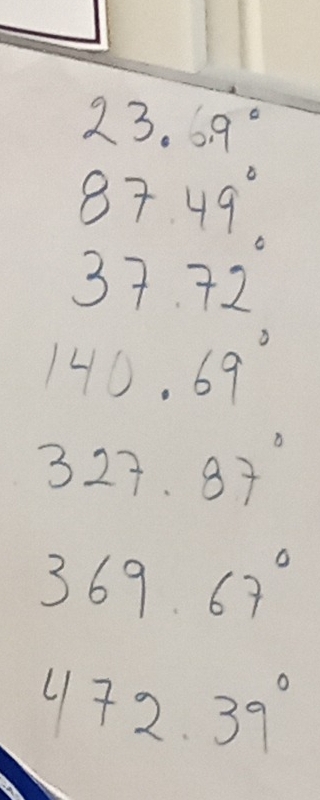 23.69°
87.49°
37.72°
140.69°
327.87°
369.67°
472.39°